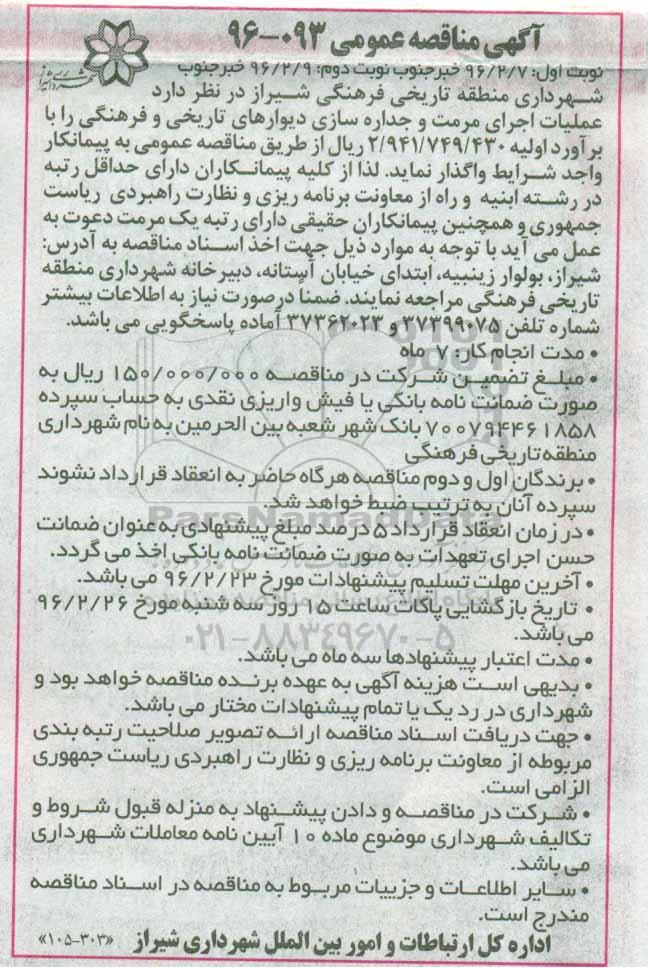 آگهی مناقصه عمومی ۰۹۳-۹۶
نوبت اول: ۹۶/۲/۷ خبرجنوب نوبت دوم: ۹۶/۲/۹ خبرجنوب
شهرداری منطقه تاریخی فرهنگی شیراز در نظر دارد
عملیات اجرای مرمت و جداره سازی دیوارهای تاریخی و فرهنگی را با
برآورد اولیه ۲/۹۴۱/۷۴۹/۴۳۰ ریال از طریق مناقصه عمومی به پیمانکار
واجد شرایط واگذار نماید. لذا از کلیه پیمانکاران دارای حداقل رتبه
در رشته ابنیه و راه از معاونت برنامه ریزی و نظارت راهبردی ریاست
جمهوری و همچنین پیمانکاران حقیقی دارای رتبه یک مرمت دعوت به
عمل می آید با توجه به موارد ذیل جهت اخذ اسناد مناقصه به آدرس:
شیراز، بولوار زینبیه، ابتدای خیابان آستانه، دبیرخانه شهرداری منطقه
تاریخی فرهنگی مراجعه نمایند. ضمنا درصورت نیاز به اطلاعات بیشتر
شماره تلفن ۳۷۳۹۹۰۷۵ و ۳۷۳۶۲۰۲۳ آماده پاسخگویی می باشد.
• مدت انجام کار: ۷ ماه
• مبلغ تضمین شرکت در مناقصه ۱۵۰/۰۰۰/۰۰۰ ریال به
صورت ضمانت نامه بانکی یا فیش واریزی نقدی به حساب سپرده
۷۰۰۷۹۴۴۶۱۸۵۸ بانک شهر شعبه بین الحرمین به نام شهرداری
منطقه تاریخی فرهنگی
• برندگان اول و دوم مناقصه هرگاه حاضر به انعقاد قرارداد نشوند
سپرده آنان به ترتیب ضبط خواهد شد
• در زمان انعقاد قرارداد ۵ درصد مبلغ پیشنهادی به عنوان ضمانت
حسن اجرای تعهدات به صورت ضمانت نامه بانکی اخذ می گردد.
• آخرین مهلت تسلیم پیشنهادات مورخ ۹۶/۲/۲۳ می باشد.
• تاریخ بازگشایی پاکات ساعت ۱۵ روز سه شنبه مورخ ۹۶/۲/۲۶
می باشد.
۰۲۱-۸۸۳۴۹۶۷۰-۵
• مدت اعتبار پیشنهادها سه ماه می باشد.
• بدیهی است هزینه آگهی به عهده برنده مناقصه خواهد بود و
شهرداری در رد یک یا تمام پیشنهادات مختار می باشد.
• جهت دریافت اسناد مناقصه ارائه تصویر صلاحیت رتبه بندی
مربوطه از معاونت برنامه ریزی و نظارت راهبردی ریاست جمهوری
الزامی است.
• شرکت در مناقصه و دادن پیشنهاد به منزله قبول شروط و
تکالیف شهرداری موضوع ماده ۱۰ آیین نامه معاملات شهرداری
می باشد.
• سایر اطلاعات و جزییات مربوط به مناقصه در اسناد مناقصه
مندرج است.
اداره کل ارتباطات و امور بین الملل شهرداری شیراز «۳۰۳-۱۰۵»